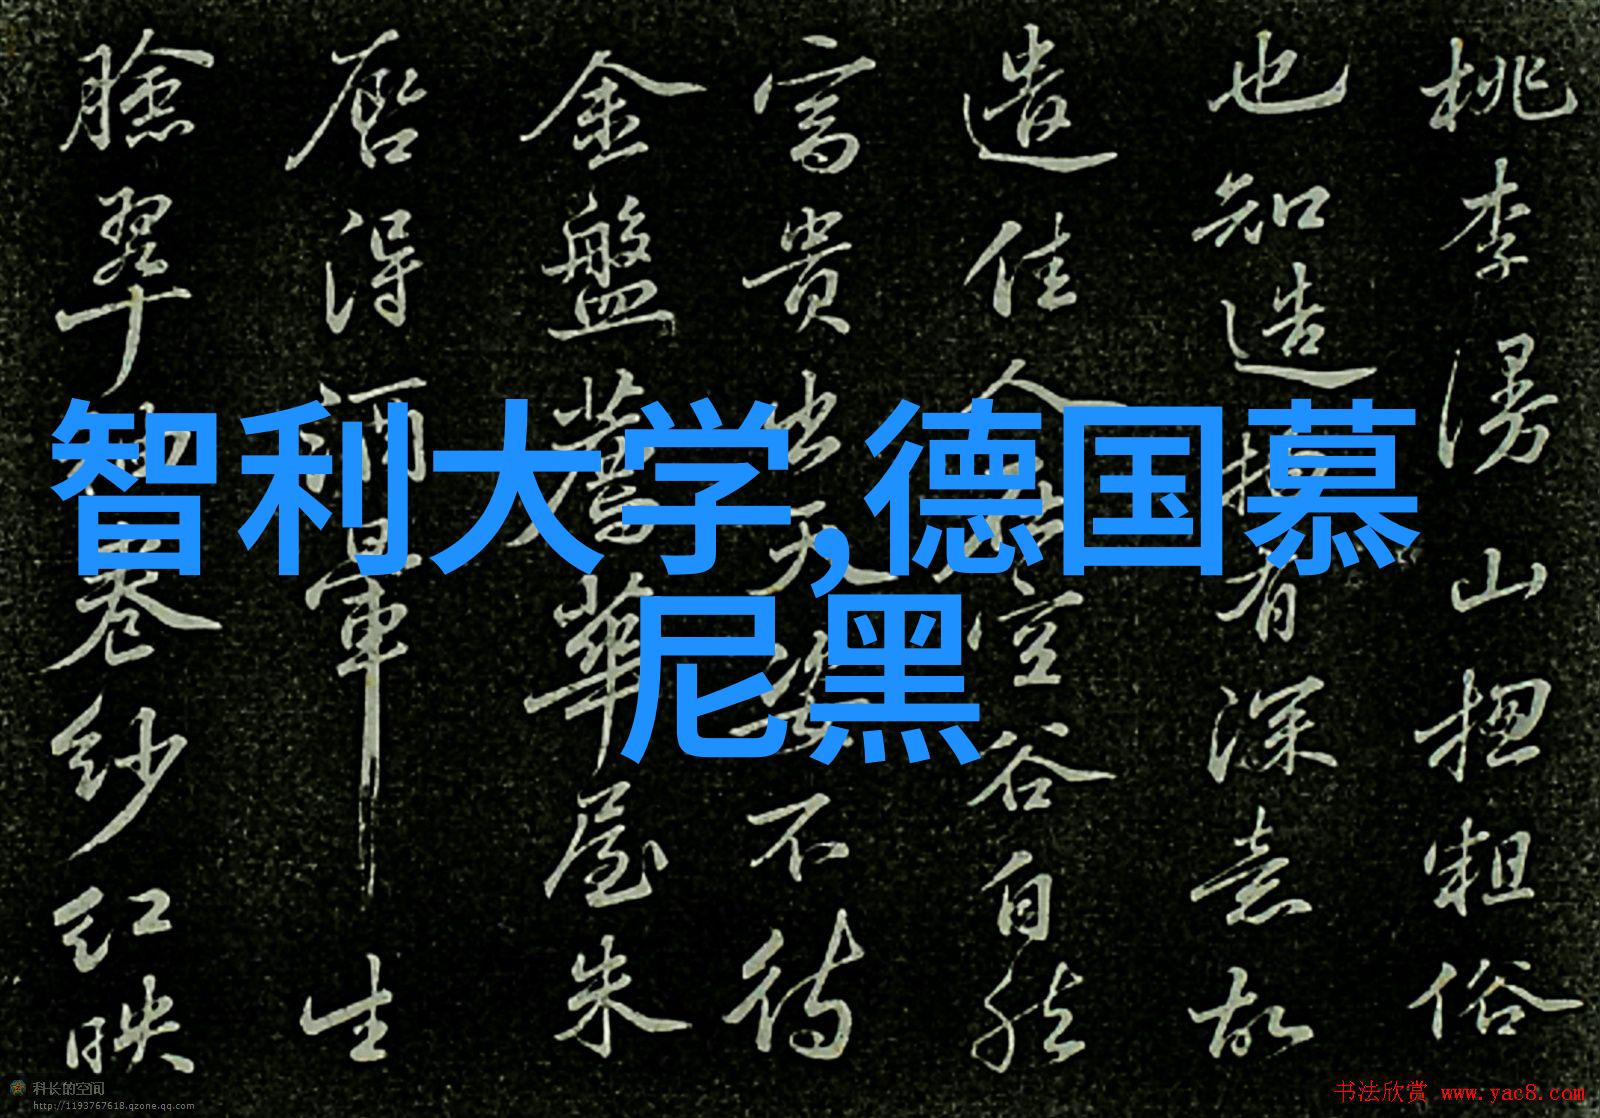 智利大学,德国慕
尼黑
桃李漫山揔粗俗
也知造物有深意故
遣佳人在空谷自然
富贵出天姿不待
金盤薦華屋朱
唇得酒暈生
臉翠袖卷紗紅映
科长的空间
http://1193767618.qzone.qq.com
书法欣赏 www.yac8.com